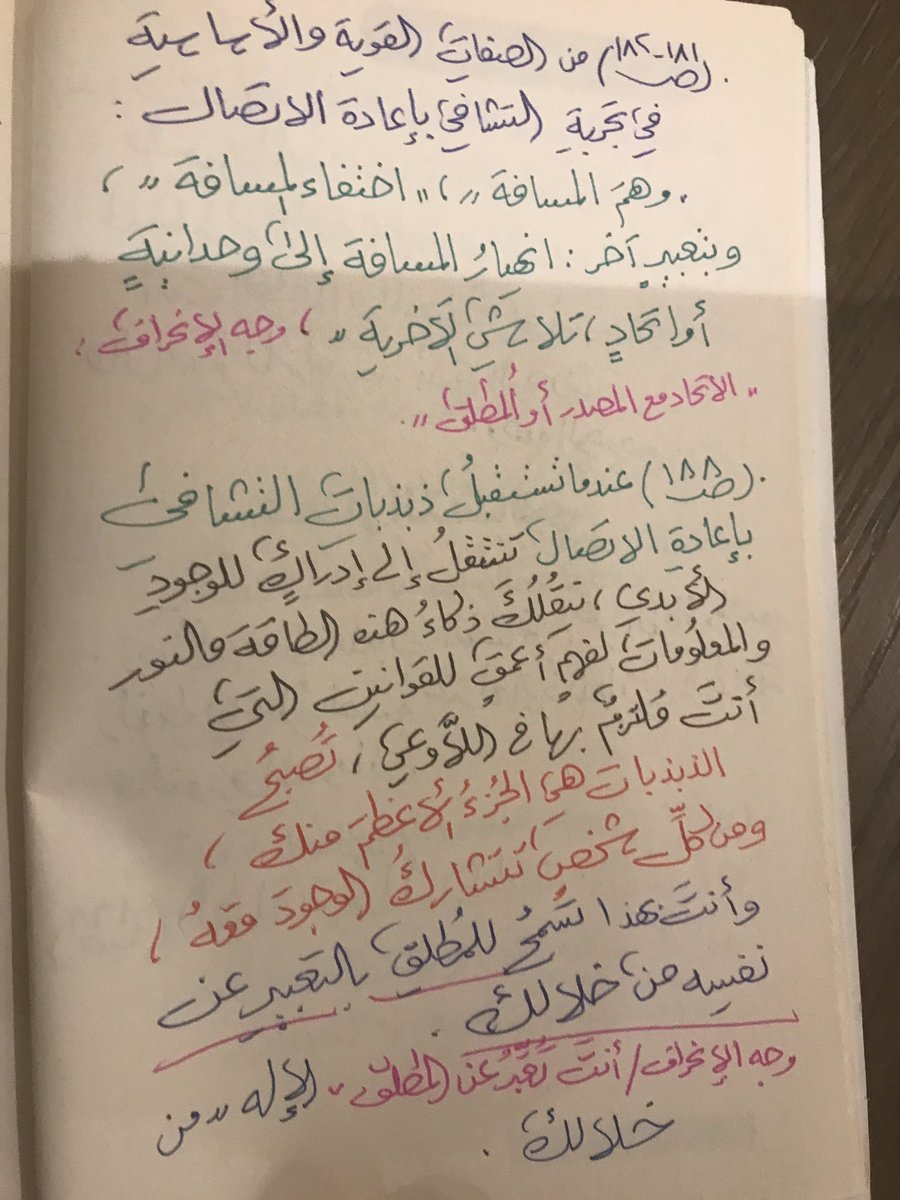 . (ص١٨١-١٨٢) من الصفات القوية والأساسية
في تجربة التشافي بإعادة الاتصال :
. وهم المسافة ،، ،" اختفاء المسافة ،، ،
وبتعبير آخر : انهيارُ المسافة إلىٰ وحدانيةٍ
أو اتحادٍ ، تلاشي الآخرية ،، ، وجه الإنحراف :
" الاتحاد مع المصدر أو المُطلق ".
. (ص١٨٨) عندما تستقبلُ ذبذبات التشافي
بإعادةِ الاتصال تنتقلُ إلى إدراكٍ للوجودِ
الأبدي ، تنقُلُكَ ذكاءُ هذه الطاقة والنور
والمعلومات لفهمٍ أعمقٍ للقوانين التي
أنتَ مُلتزمٌ بها في اللَّاوعي ، تُصبحُ
الذبذبات هي الجُزءُ الأعظم منك ،
ومن كلِّ شخص تَتشاركُ الوجودَ معهُ ،
وأنت بهذا تسْمحُ للمُطلق بالتعبير عن
نفسه من خلالك .
وجه الإنحراف / أنت تعَبّرُ عن المطلق " الإله ،، من
خلالك .